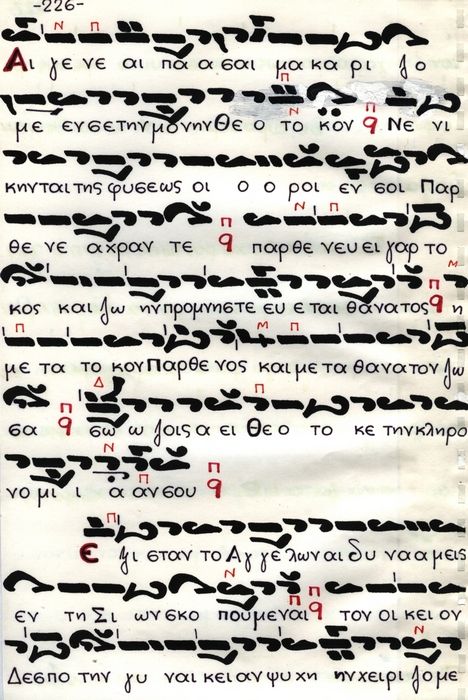 -226-
Αι γε νε αι πα α σαι μα κα ρι ζο
με εν σε την μο νην Θε ο το κον Νε νι
κην ται της φυ σε ως οι ο ο ροι εν σοι Παρ
θε νε α χραν τε παρ θε νευ ει γαρ το
κος και ζω ην προ μνη στε ευ ε ται θα να τος η
με τα το κον Παρ θε νος και με τα θα να τον ζω
σα σω ω ζοις α ει Θε ο το κε την κλη ρο
νο μι ι α αν σου
Ε ξι σταν το Αγ γε λων αι δυ να α μεις
εν τη Σι ων σκο που με ναι τον οι κει ον
Δεσ πο την γυ ναι κει αν ψυ χη ην χει ρι ζο με